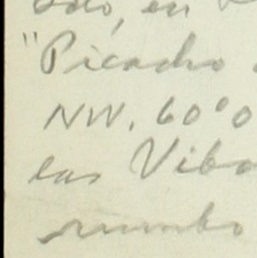 odo, en
"Picacho
NW. 60°0
las Vibo
rumbo